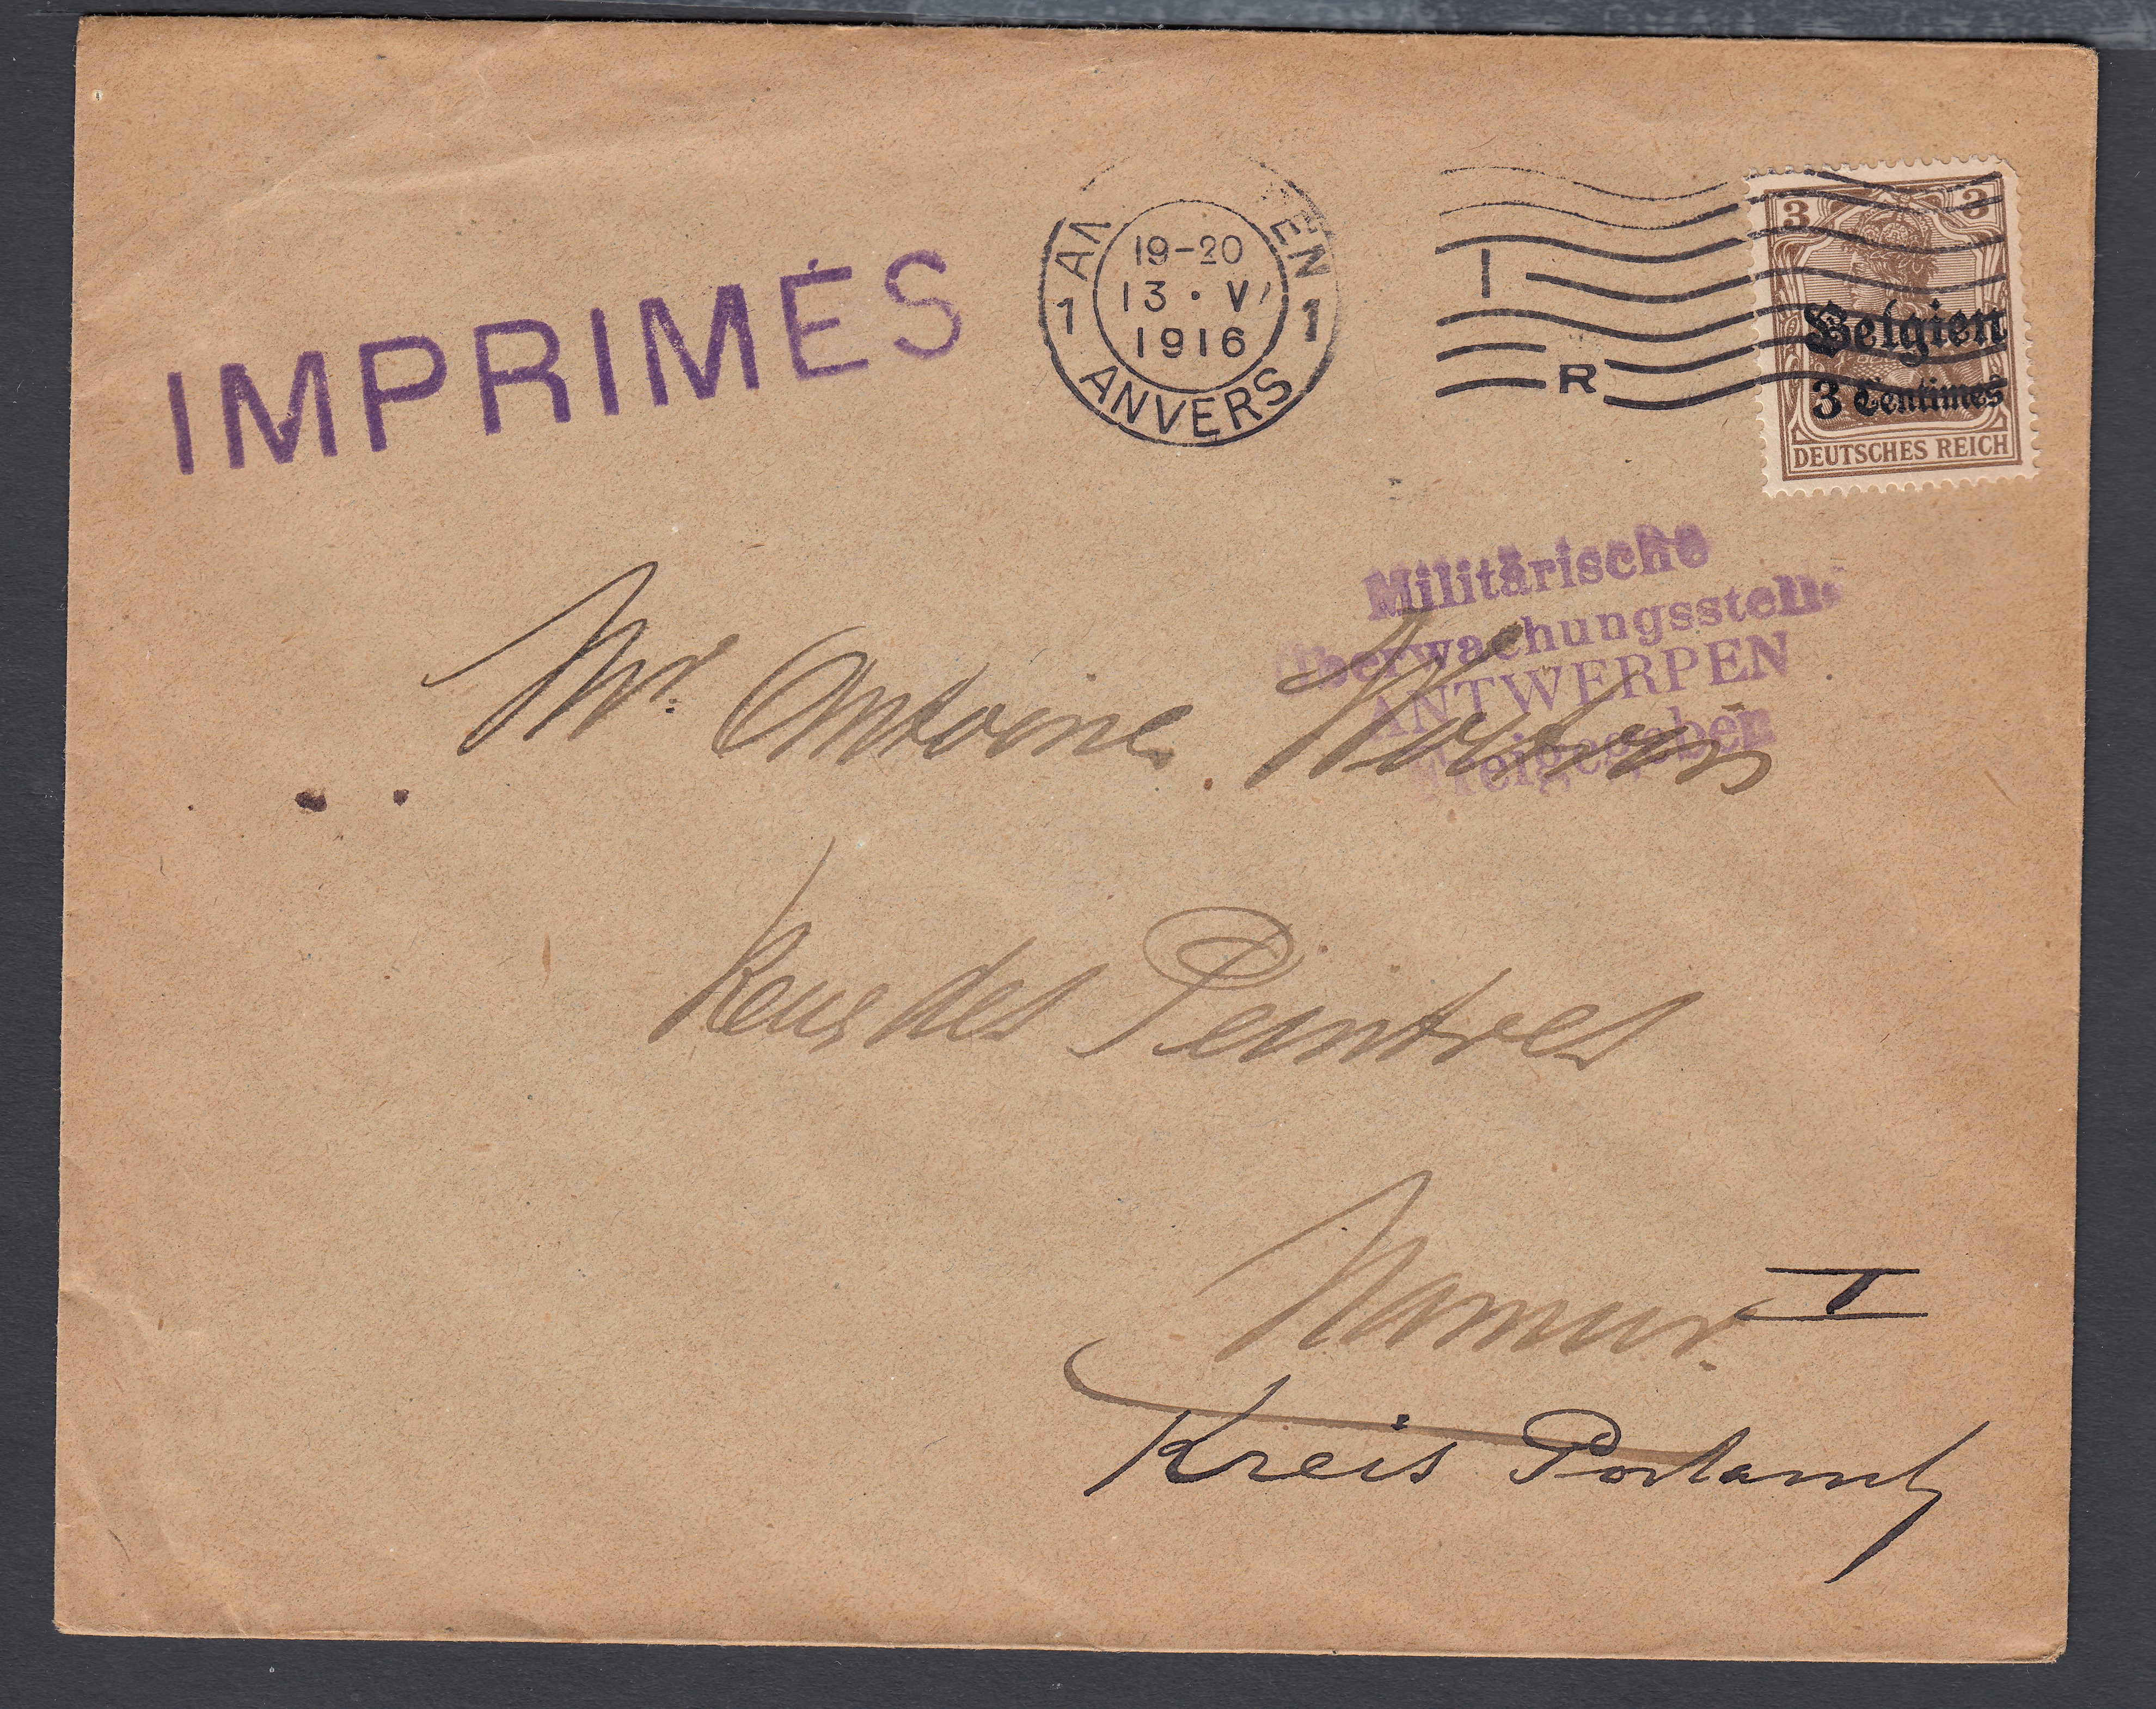 IMPRIMÉS
AN EN
19-20
13 · V
1916
1 1
ANVERS
I
R
3 3
Belgien
3 Centimes
DEUTSCHES REICH
Militärische
Überwachungsstelle
ANTWERPEN
Freigegeben
Mr. Antoine
Rue des Peintres
Namur. I
Kreis Postamt